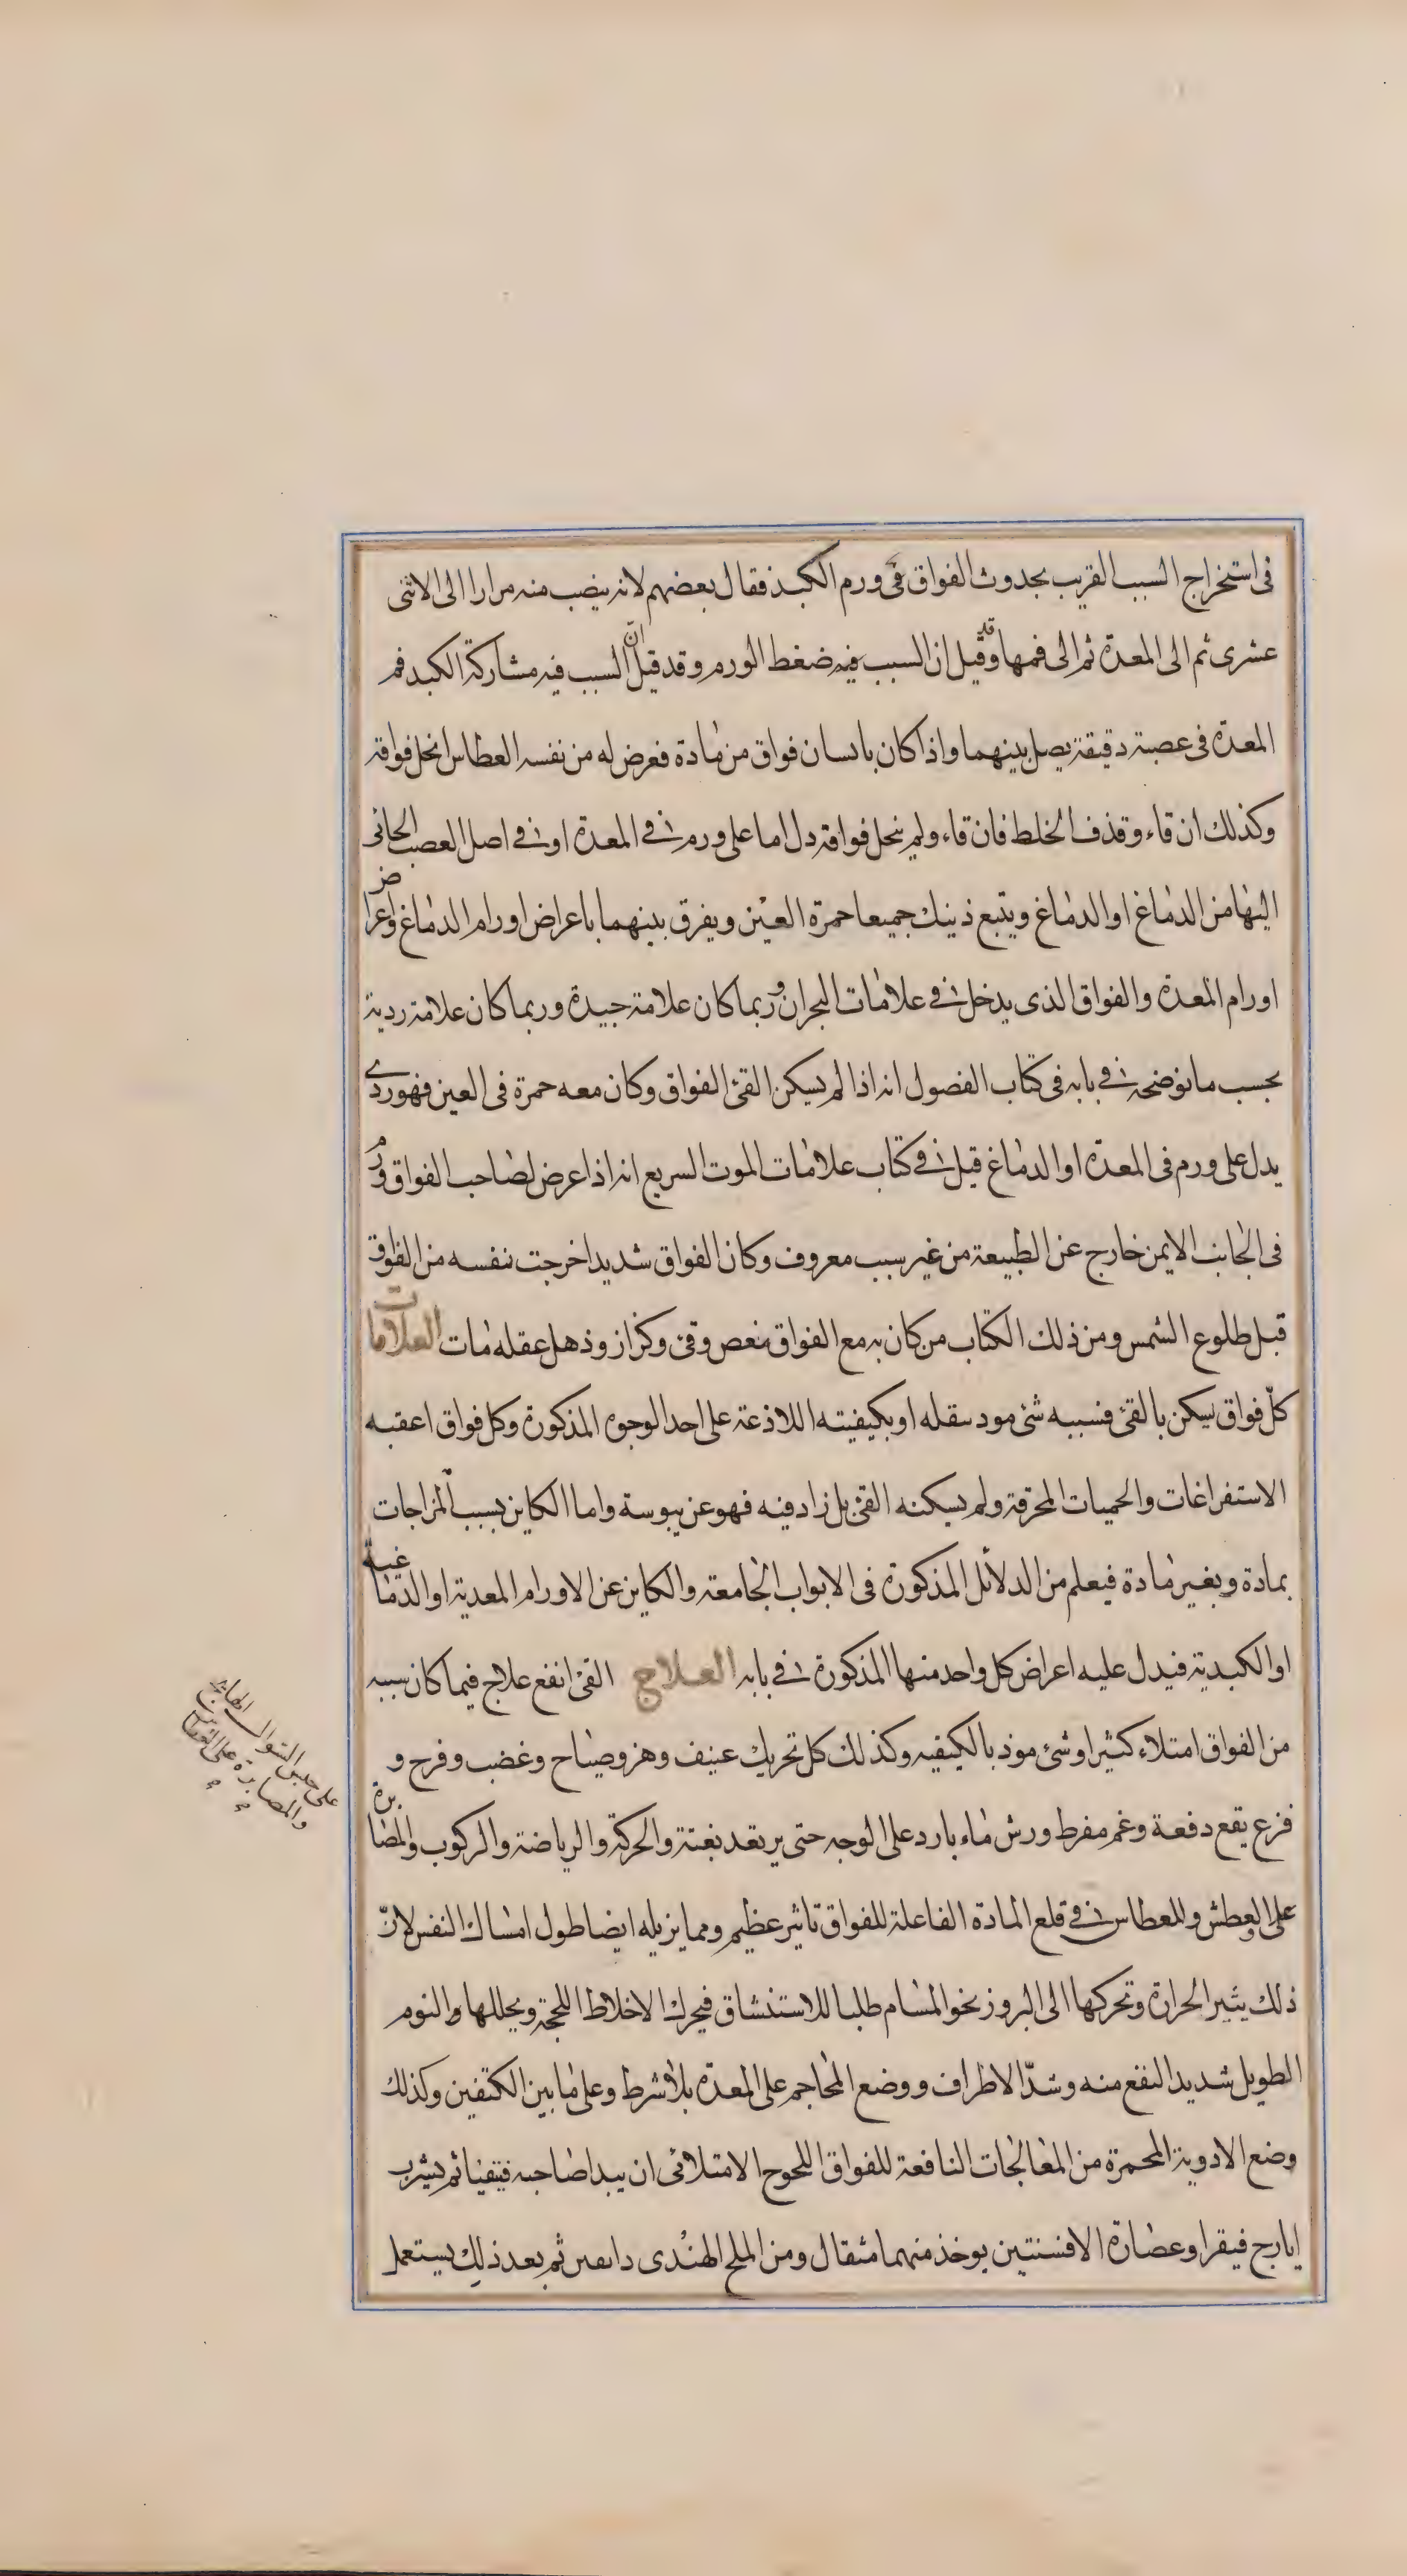 فى استخراج السبب القريب بحدوث الفواق فى ورم الكبد فقال بعضهم لانه ينصب منه مرارا الى الاثنى
عشرى ثم الى المعدة ثم الى فمها وقد قيل ان السبب فيه ضغط الورم وقد قيل ان السبب فيه مشاركة الكبد فم
المعدة فى عصبة دقيقة يصل بينهما واذا كان بانسان فواق من مادة فعرض له من نفسه العطاس انحل فواقه
وكذلك ان قاء وقذف الخلط فان قاء ولم ينحل فواقه دل اما على ورم فى المعدة او فى اصل العصب الجائى
اليها من الدماغ او الدماغ ويتبع ذينك جميعا حمرة العين ويفرق بينهما باعراض اورام الدماغ واعراض
اورام المعدة والفواق الذى يدخل فى علامات البحران وربما كان علامة جيدة وربما كان علامة ردية
بحسب ما نوضحه فى بابه فى كتاب الفصول انه اذا لم يسكن القئ الفواق وكان معه حمرة فى العين فهو ردى
يدل على ورم فى المعدة او الدماغ قيل فى كتاب علامات الموت السريع انه اذا عرض لصاحب الفواق ورم
فى الجانب الايمن خارج عن الطبيعة من غير سبب معروف وكان الفواق شديدا خرجت نفسه من الفواق
قبل طلوع الشمس ومن ذلك الكتاب من كان به مع الفواق مغص وقئ وكزاز وذهل عقله مات العلامات
كل فواق يسكن بالقئ فسببه شئ موذ بثقله او بكيفيته اللاذعة على احد الوجوه المذكورة وكل فواق اعقبه
الاستفراغات والحميات المحرقة ولم يسكنه القئ بل زاد فيه فهو عن يبوسة واما الكاين بسبب المزاجات
بمادة وبغير مادة فيعلم من الدلائل المذكورة فى الابواب الجامعة والكاين عن الاورام المعدية او الدماغية
او الكبدية فيدل عليه اعراض كل واحد منها المذكورة فى بابه العلاج القئ انفع علاج فيما كان سببه
من الفواق امتلاء كثيرا او شئ موذ بالكيفيه وكذلك كل تحريك عنيف وهز وصياح وغضب وفرح و
فزع يقع دفعة وغم مفرط ورش ماء بارد على الوجه حتى يرتعد بغتة والحركة والرياضة والركوب والمصابرة
على العطش وللعطاس فى قلع المادة الفاعلة للفواق تاثير عظيم ومما يزيله ايضا طول امساك النفس لان
ذلك يثير الحرارة وتحركها الى البروز نحو المسام طلبا للاستنشاق فيحرك الاخلاط اللحجة ويحللها والنوم
الطويل شديد النفع منه وشد الاطراف ووضع المحاجم على المعدة بلا شرط وعلى ما بين الكتفين وكذلك
وضع الادوية المحمرة من المعالجات النافعة للفواق اللحوج الامتلائى ان يبدا صاحبه فيتقيا ثم يشرب
ايارج فيقرا وعصارة الافسنتين يوخذ منهما مثقال ومن الملح الهندى دانقين ثم بعد ذلك يستعمل
على حبس السعال الهائج
والمصابرة على العطش